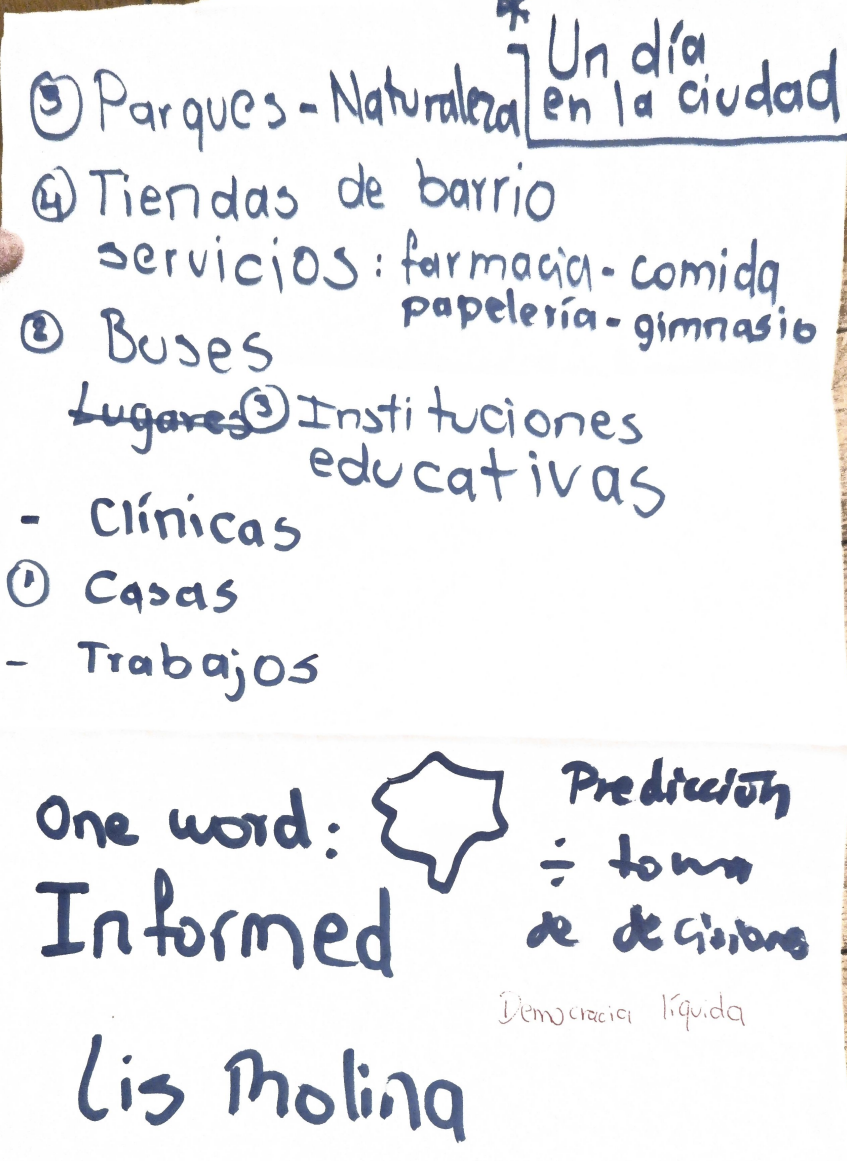 * Un día
en la ciudad
⑤ Parques - Naturaleza
④ Tiendas de barrio
servicios: farmacia - comida
papelería - gimnasio
② Buses
Lugares ③ Instituciones
educativas
- Clínicas
① Casas
- Trabajos
One word:
Informed
Predicción
÷ toma
de decisiones
Democracia líquida
Lis Molina